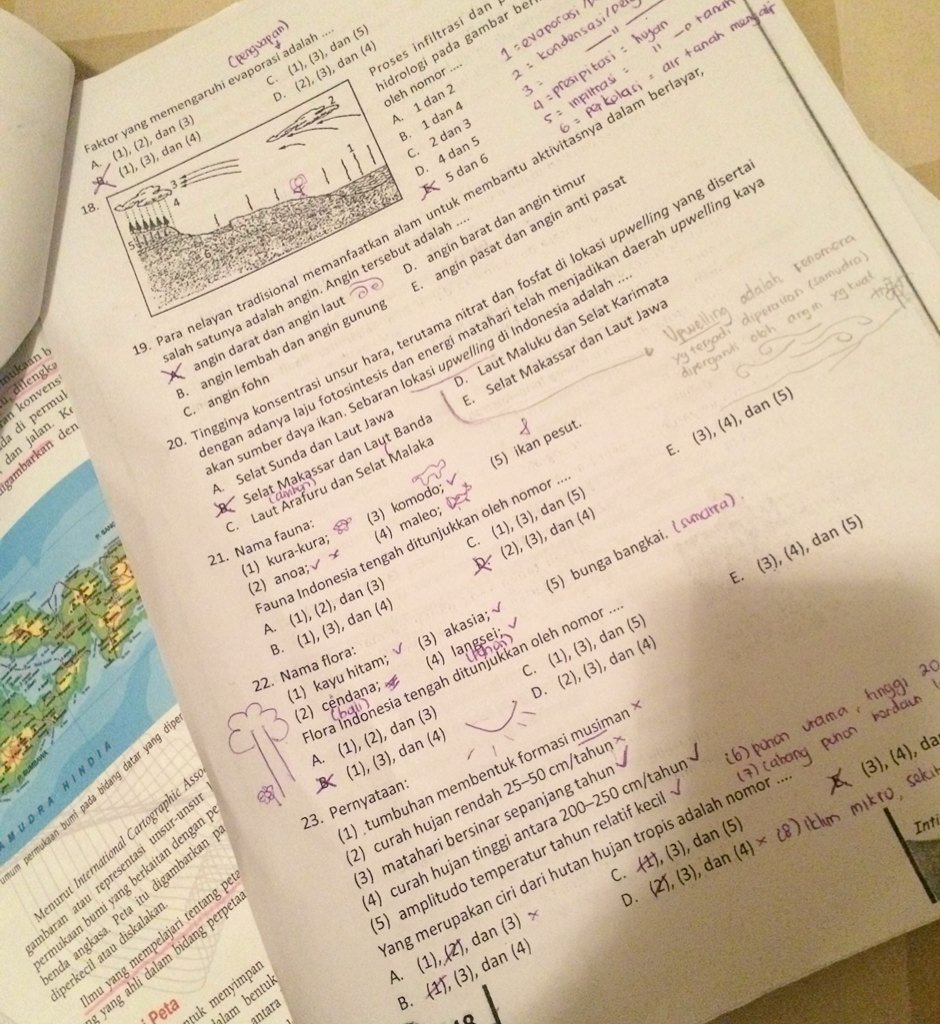 (penguapan)
Faktor yang memengaruhi evaporasi adalah ....
A. (1), (2), dan (3)
B. (1), (3), dan (4)
C. (1), (3), dan (5)
D. (2), (3), dan (4)
18.
Proses infiltrasi dan
hidrologi pada gambar
oleh nomor ....
A. 1 dan 2
B. 1 dan 4
C. 2 dan 3
D. 4 dan 5
E. 5 dan 6
1 = evaporasi
2 = kondensasi
3 = "
4 = presipitasi = hujan
5 = infiltrasi = " → tanah
6 = perkolasi = air tanah mengalir
19. Para nelayan tradisional memanfaatkan alam untuk membantu aktivitasnya dalam berlayar,
salah satunya adalah angin. Angin tersebut adalah ....
A. angin darat dan angin laut
B. angin lembah dan angin gunung
C. angin fohn
D. angin barat dan angin timur
E. angin pasat dan angin anti pasat
20. Tingginya konsentrasi unsur hara, terutama nitrat dan fosfat di lokasi upwelling yang disertai
dengan adanya laju fotosintesis dan energi matahari telah menjadikan daerah upwelling kaya
akan sumber daya ikan. Sebaran lokasi upwelling di Indonesia adalah ....
A. Selat Sunda dan Laut Jawa
B. Selat Makassar dan Laut Banda
C. Laut Arafuru dan Selat Malaka
D. Laut Maluku dan Selat Karimata
E. Selat Makassar dan Laut Jawa
Upwelling adalah fenomena
yg terjadi diperairan (samudra)
oleh angin yg kuat
21. Nama fauna:
(1) kura-kura;
(2) anoa;
(3) komodo;
(4) maleo;
(5) ikan pesut.
Fauna Indonesia tengah ditunjukkan oleh nomor ....
A. (1), (2), dan (3)
B. (1), (3), dan (4)
C. (1), (3), dan (5)
D. (2), (3), dan (4)
E. (3), (4), dan (5)
22. Nama flora:
(1) kayu hitam;
(2) cendana;
(3) akasia;
(4) langsei;
(5) bunga bangkai. (sumatra)
(bali)
(pohon)
Flora Indonesia tengah ditunjukkan oleh nomor ....
A. (1), (2), dan (3)
B. (1), (3), dan (4)
C. (1), (3), dan (5)
D. (2), (3), dan (4)
E. (3), (4), dan (5)
23. Pernyataan:
(1) tumbuhan membentuk formasi musiman
(2) curah hujan rendah 25–50 cm/tahun
(3) matahari bersinar sepanjang tahun
(4) curah hujan tinggi antara 200–250 cm/tahun
(5) amplitudo temperatur tahun relatif kecil
(6) pohon utama, tinggi 20
(7) cabang pohon
(8) iklim mikro,
Yang merupakan ciri dari hutan hujan tropis adalah nomor ....
A. (1), (2), dan (3)
B. (1), (3), dan (4)
C. (1), (3), dan (5)
D. (2), (3), dan (4)
E. (3), (4), da
Inti
SAMUDRA HINDIA
umum permukaan bumi pada bidang datar yang diper
Menurut International Cartographic Asso
gambaran atau representasi unsur-unsur
permukaan bumi yang berkaitan dengan pe
benda angkasa. Peta itu digambarkan pa
diperkecil atau diskalakan.
Ilmu yang mempelajari tentang peta
ng yang ahli dalam bidang perpetaa
Peta
tuk menyimpan
dalam bentuk
antara